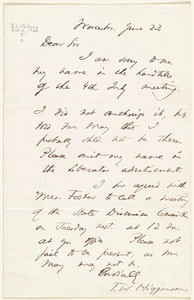 Worcester, June 22
Dear Sir
I am sorry to see
my name in the handbills
of the 4th July meeting.
I did not authorize it, he
told Mr. May that I
probably shd. not be there.
Please omit my name in
the Liberator advertisement.
I have agreed with
Mrs. Foster to call a meeting
of the State Disunion Committee
on Tuesday next at 12 m.
at yr office. Please not
fail to be present, as Mr.
May may not be.
Cordially
T. W. Higginson